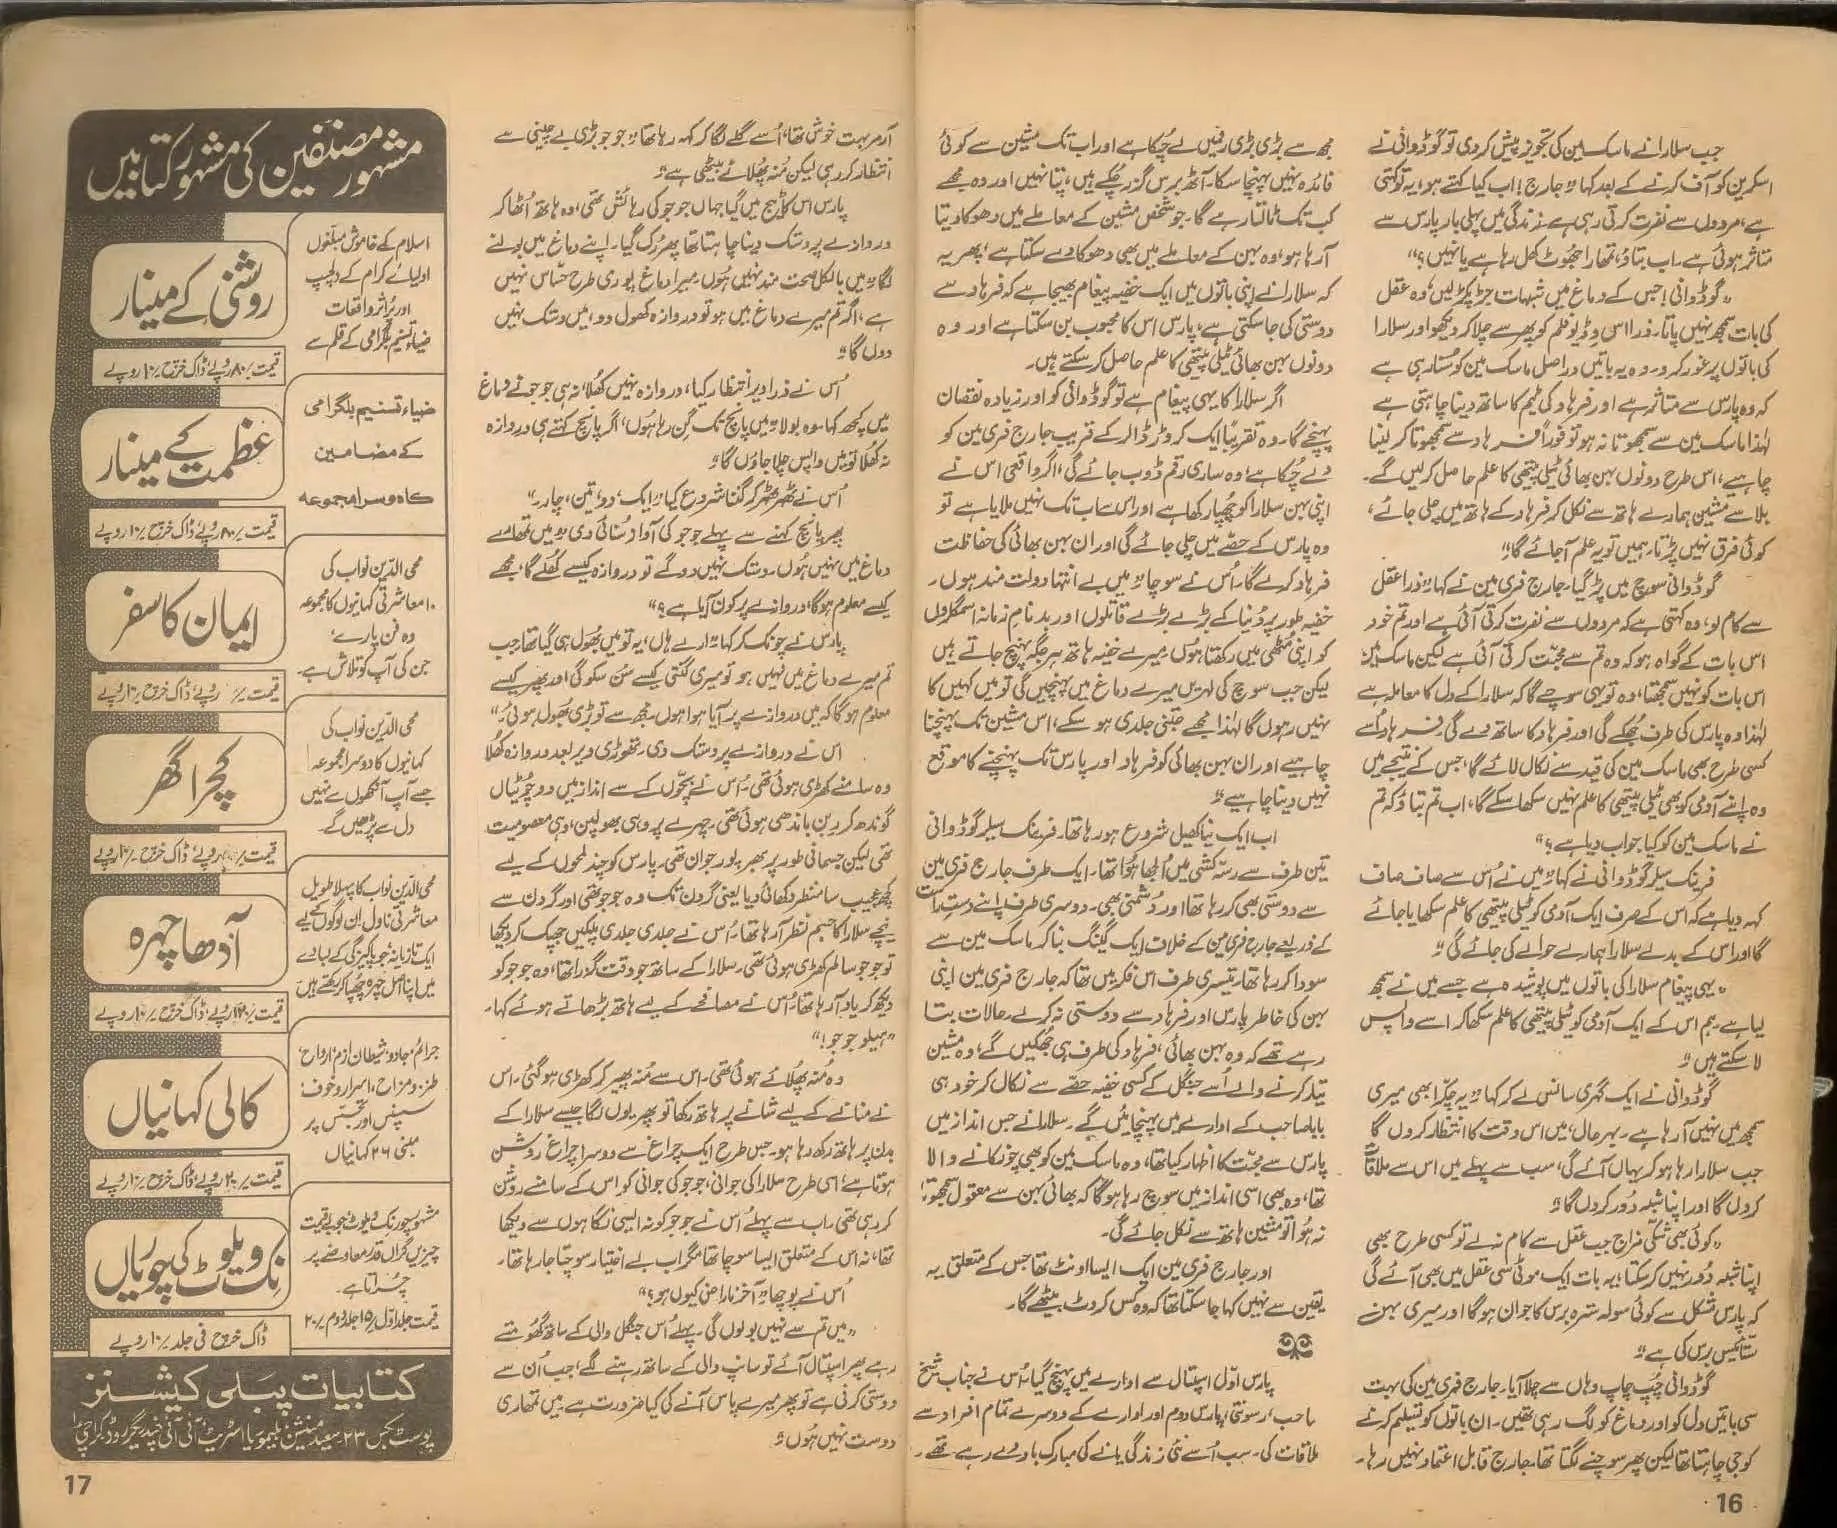 جب سلارا نے ماسک مین کی تجویز پیش کر دی تو گوڈوانی نے
اسکرین کو آف کرنے کے بعد کہا "جارج! اب کیا کہتے ہو، یہ تو کہتی
ہے، مردوں سے نفرت کرتی رہی ہے۔ زندگی میں پہلی بار پارس سے
متاثر ہوئی ہے۔ اب بتاؤ، تمھارا جھوٹ کھل رہا ہے یا نہیں؟"
"گوڈوانی! جس کے دماغ میں شبہات جڑ پکڑ لیں، وہ عقل
کی بات سمجھ نہیں پاتا۔ ذرا اس وڈیو فلم کو پھر سے چلا کر دیکھو اور سلارا
کی باتوں پر غور کرو۔ وہ یہ باتیں دراصل ماسک مین کو سنا رہی ہے
کہ وہ پارس سے متاثر ہے اور فرہاد کی ٹیم کا ساتھ دینا چاہتی ہے
لہٰذا ماسک مین سے سمجھوتا نہ ہو تو فوراً فرہاد سے سمجھوتا کر لینا
چاہیے، اس طرح دونوں بہن بھائی ٹیلی پیتھی کا علم حاصل کر لیں گے۔
بلا سے مشین ہمارے ہاتھ سے نکل کر فرہاد کے ہاتھ میں چلی جائے،
کوئی فرق نہیں پڑتا، ہمیں تو یہ علم آجائے گا۔"
گوڈوانی سوچ میں پڑ گیا۔ جارج فری مین نے کہا "ذرا عقل
سے کام لو، وہ کہتی ہے کہ مردوں سے نفرت کرتی آئی ہے اور تم خود
اس بات کے گواہ ہو کہ وہ تم سے محبت کرتی آئی ہے لیکن ماسک مین
اس بات کو نہیں سمجھتا، وہ تو یہی سوچے گا کہ سلارا کے دل کا معاملہ ہے
لہٰذا وہ پارس کی طرف جھکے گی اور فرہاد کا ساتھ دے گی۔ فرہاد اُسے
کسی طرح بھی ماسک مین کی قید سے نکال لائے گا، جس کے نتیجے میں
وہ اپنے آدمی کو بھی ٹیلی پیتھی کا علم نہیں سکھا سکے گا، اب تم بتاؤ کہ تم
نے ماسک مین کو کیا جواب دیا ہے؟"
فرینک سیلر گوڈوانی نے کہا "میں نے اُس سے صاف صاف
کہہ دیا ہے کہ اس کے صرف ایک آدمی کو ٹیلی پیتھی کا علم سکھایا جائے
گا اور اس کے بدلے سلارا ہمارے حوالے کی جائے گی۔"
"یہی پیغام سلارا کی باتوں میں پوشیدہ ہے جسے میں نے سمجھ
لیا ہے۔ ہم اس کے ایک آدمی کو ٹیلی پیتھی کا علم سکھا کر اسے واپس
لا سکتے ہیں۔"
گوڈوانی نے ایک گہری سانس لے کر کہا "یہ چکر ابھی میری
سمجھ میں نہیں آرہا ہے۔ بہرحال، میں اس وقت کا انتظار کروں گا
جب سلارا رہا ہو کر یہاں آئے گی، سب سے پہلے میں اس سے ملاقات
کروں گا اور اپنا شبہ دُور کروں گا۔"
"کوئی بھی شکی مزاج جب عقل سے کام نہ لے تو کسی طرح بھی
اپنا شبہ دُور نہیں کر سکتا۔ یہ بات ایک موٹی سی عقل میں بھی آئے گی
کہ پارس شکل سے کوئی سولہ سترہ برس کا جوان ہوگا اور میری بہن
ستائیس برس کی ہے۔"
گوڈوانی چپ چاپ وہاں سے چلا آیا۔ جارج فری مین کی بہت
سی باتیں دل کو اور دماغ کو لگ رہی تھیں۔ ان باتوں کو تسلیم کرنے
کو جی چاہتا تھا لیکن پھر سوچنے لگتا تھا، جارج قابل اعتماد نہیں رہا۔
16
مجھ سے بڑی بڑی رقمیں لے چکا ہے اور اب تک مشین سے کوئی
فائدہ نہیں پہنچا سکا۔ آٹھ برس گزر چکے ہیں، پتا نہیں اور وہ مجھے
کب تک ٹالتا رہے گا۔ جو شخص مشین کے معاملے میں دھوکا دیتا
آرہا ہو، وہ بہن کے معاملے میں بھی دھوکا دے سکتا ہے، پھر یہ
کہ سلارا نے اپنی باتوں میں ایک خفیہ پیغام بھیجا ہے کہ فرہاد سے
دوستی کی جا سکتی ہے، پارس اس کا محبوب بن سکتا ہے اور وہ
دونوں بہن بھائی ٹیلی پیتھی کا علم حاصل کر سکتے ہیں۔
اگر سلارا کا یہی پیغام ہے تو گوڈوانی کو اور زیادہ نقصان
پہنچے گا۔ وہ تقریباً ایک کروڑ ڈالر کے قریب جارج فری مین کو
دے چکا ہے، وہ ساری رقم ڈوب جائے گی، اگر واقعی اس نے
اپنی بہن سلارا کو چھپا رکھا ہے اور اس سے اب تک نہیں ملایا ہے تو
وہ پارس کے حصے میں چلی جائے گی اور ان بہن بھائی کی حفاظت
فرہاد کرے گا۔ اُس نے سوچا "میں بے انتہا دولت مند ہوں۔
خفیہ طور پر دُنیا کے بڑے بڑے قاتلوں اور بدنام زمانہ اسمگلروں
کو اپنی مُٹھی میں رکھتا ہوں۔ میرے خفیہ ہاتھ ہر جگہ پہنچ جاتے ہیں
لیکن جب سوچ کی لہریں میرے دماغ میں پہنچیں گی تو میں کہیں کا
نہیں رہوں گا لہٰذا مجھے جتنی جلدی ہو سکے، اس مشین تک پہنچنا
چاہیے اور ان بہن بھائی کو فرہاد اور پارس تک پہنچنے کا موقع
نہیں دینا چاہیے۔"
اب ایک نیا کھیل شروع ہو رہا تھا۔ فرینک سیلر گوڈوانی
تین طرف سے رسہ کشی میں اُلجھا ہوا تھا۔ ایک طرف جارج فری مین
سے دوستی بھی کر رہا تھا اور دُشمنی بھی۔ دوسری طرف اپنے دستِ راست
کے ذریعے جارج فری مین کے خلاف ایک گینگ بنا کر ماسک مین سے
سودا کر رہا تھا، تیسری طرف اس فکر میں تھا کہ جارج فری مین اپنی
بہن کی خاطر پارس اور فرہاد سے دوستی نہ کرے۔ حالات بتا
رہے تھے کہ وہ بہن بھائی، فرہاد کی طرف ہی جھکیں گے، وہ مشین
تیار کرنے والے اُسے جنگل کے کسی خفیہ حصے سے نکال کر خود ہی
بابا صاحب کے ادارے میں پہنچائیں گے۔ سلارا نے جس انداز میں
پارس سے محبت کا اظہار کیا تھا، وہ ماسک مین کو بھی چونکانے والا
تھا، وہ بھی اسی انداز میں سوچ رہا ہوگا کہ بھائی بہن سے معقول سمجھوتہ
نہ ہوا تو مشین ہاتھ سے نکل جائے گی۔
اور جارج فری مین ایک ایسا اونٹ تھا جس کے متعلق یہ
یقین سے نہیں کہا جا سکتا تھا کہ وہ کس کروٹ بیٹھے گا۔
پارس اوّل اسپتال سے ادارے میں پہنچ گیا۔ اُس نے جناب شیخ
صاحب، رسونتی، پارس دوم اور ادارے کے دوسرے تمام افراد سے
ملاقات کی۔ سب اُسے نئی زندگی پانے کی مبارک باد دے رہے تھے۔
آرمر بہت خوش تھا، اُسے گلے لگا کر کہہ رہا تھا "جوجو بڑی بے چینی سے
انتظار کر رہی لیکن مُنہ پھلائے بیٹھی ہے۔"
پارس اس کاٹیج میں گیا جہاں جوجو کی رہائش تھی، وہ ہاتھ اُٹھا کر
دروازے پر دستک دینا چاہتا تھا پھر رُک گیا۔ اپنے دماغ میں بولنے
لگا "میں بالکل صحت مند نہیں ہوں۔ میرا دماغ پوری طرح حسّاس نہیں
ہے، اگر تم میرے دماغ میں ہو تو دروازہ کھول دو، میں دستک نہیں
دوں گا۔"
اُس نے ذرا دیر انتظار کیا، دروازہ نہیں کھلا، نہ ہی جوجو نے دماغ
میں کچھ کہا۔ وہ بولا "میں پانچ تک گن رہا ہوں، اگر پانچ کہتے ہی دروازہ
نہ کھلا تو میں واپس چلا جاؤں گا۔"
اُس نے ٹھہر ٹھہر کر گننا شروع کیا "ایک، دو، تین، چار۔"
پھر پانچ کہنے سے پہلے جوجو کی آواز سُنائی دی "میں تمھارے
دماغ میں نہیں ہوں۔ دستک نہیں دو گے تو دروازہ کیسے کھلے گا، مجھے
کیسے معلوم ہوگا، دروازے پر کون آیا ہے؟"
پارس نے چونک کر کہا "ارے ہاں، یہ تو میں بھول ہی گیا تھا جب
تم میرے دماغ میں نہیں ہو تو میری گنتی کیسے سُن سکو گی اور پھر کیسے
معلوم ہوگا کہ میں دروازے پر آیا ہوا ہوں۔ مجھ سے تو بڑی بھول ہوئی۔"
اس نے دروازے پر دستک دی۔ تھوڑی دیر بعد دروازہ کھلا
وہ سامنے کھڑی ہوئی تھی۔ اُس نے بچوں کے سے انداز میں دو چٹیاں
گوندھ کر ربن باندھی ہوئی تھی۔ چہرے پر وہی بھولپن، وہی معصومیت
تھی لیکن جسمانی طور پر بھرپور جوان تھی۔ پارس کو چند لمحوں کے لیے
کچھ عجیب سا منظر دکھائی دیا یعنی گردن تک وہ جوجو تھی اور گردن سے
نیچے سلارا کا جسم نظر آرہا تھا۔ اُس نے جلدی جلدی پلکیں جھپک کر دیکھا
تو جوجو سالم کھڑی ہوئی تھی۔ سلارا کے ساتھ جو وقت گزرا تھا، وہ جوجو کو
دیکھ کر یاد آرہا تھا۔ اُس نے مصافحے کے لیے ہاتھ بڑھاتے ہوئے کہا۔
"ہیلو جوجو!"
وہ مُنہ پھلائے ہوئی تھی۔ اس سے مُنہ پھیر کر کھڑی ہو گئی۔ اس
نے منانے کے لیے شانے پر ہاتھ رکھا تو پھر یوں لگا جیسے سلارا کے
بدن پر ہاتھ رکھ رہا ہو۔ جس طرح ایک چراغ سے دوسرا چراغ روشن
ہوتا ہے، اسی طرح سلارا کی جوانی، جوجو کی جوانی کو اس کے سامنے روشن
کر رہی تھی۔ اب سے پہلے اُس نے جوجو کو نہ ایسی نگاہوں سے دیکھا
تھا، نہ اس کے متعلق ایسا سوچا تھا مگر اب بے اختیار سوچتا جا رہا تھا۔
اُس نے پوچھا "آخر ناراض کیوں ہو؟"
"میں تم سے نہیں بولوں گی۔ پہلے اُس جنگل والی کے ساتھ گھومتے
رہے پھر اسپتال آئے تو سانپ والی کے ساتھ رہنے لگے، جب اُن سے
دوستی کرنی ہے تو پھر میرے پاس آنے کی کیا ضرورت ہے۔ میں تمھاری
دوست نہیں ہوں۔"
مشہور مصنفین کی مشہور کتابیں
اسلام کے خاموش مبلغوں
اولیائے کرام کے دلچسپ
اور پُر اثر واقعات
ضیاء تسنیم بلگرامی کے قلم سے
روشنی کے مینار
قیمت ۸۰/ روپے ڈاک خرچ ۱۰/ روپے
ضیاء تسنیم بلگرامی
کے مضامین
کا دوسرا مجموعہ
عظمت کے مینار
قیمت ۸۰/ روپے ڈاک خرچ ۱۰/ روپے
محی الدین نواب کی
۱۰ معاشرتی کہانیوں کا مجموعہ
وہ فن پارے،
جن کی آپ کو تلاش ہے۔
ایمان کا سفر
قیمت روپے ڈاک خرچ ۱۰/ روپے
محی الدین نواب کی
کہانیوں کا دوسرا مجموعہ
جسے آپ آنکھوں سے نہیں
دل سے پڑھیں گے۔
کچرا گھر
قیمت روپے ڈاک خرچ ۱۰/ روپے
محی الدین نواب کا پہلا طویل
معاشرتی ناول۔ ان لوگوں کے لیے
ایک تازیانہ جو پاکیزگی کے لبادے
میں اپنا اصل چہرہ چھپا کر رکھتے ہیں
آدھا چہرہ
قیمت روپے ڈاک خرچ ۱۰/ روپے
جرائم، جادو، شیطان ازم، ارواح،
طنز و مزاح، اسرار و خوف،
سسپنس اور تجسّس پر
مبنی ۲۶ کہانیاں
کالی کہانیاں
قیمت ۲۰/ روپے ڈاک خرچ ۱۰/ روپے
مشہور چور نک ویلوٹ جو بے قیمت
چیزیں گراں قدر معاوضے پر
چُراتا ہے۔
قیمت جلد اوّل ۱۵/ جلد دوم ۲۰/
نک ویلوٹ کی چوریاں
ڈاک خرچ فی جلد ۱۰/ روپے
کتابیات پبلی کیشنز
پوسٹ بکس ۲۳۔ سعید مینشن بلیموریا اسٹریٹ آئی آئی چندریگر روڈ کراچی
17